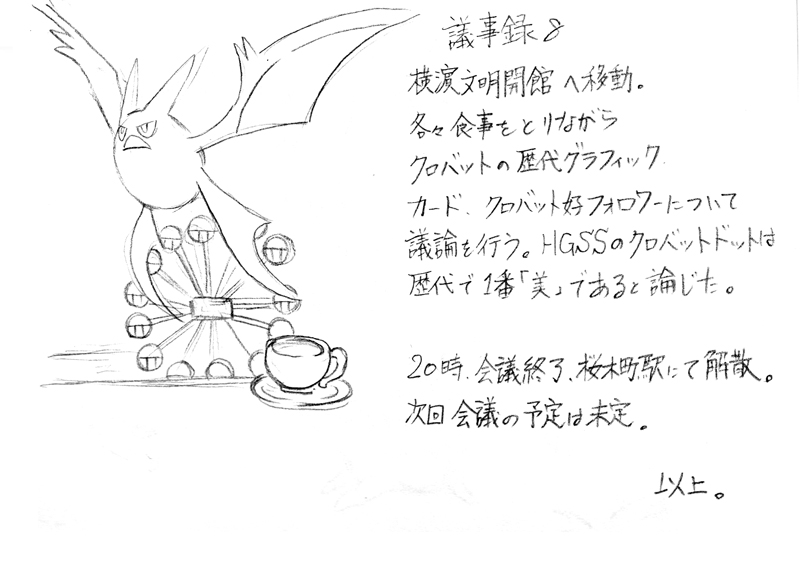 議事録8
横濱文明開館へ移動。
各々食事をとりながら
クロバットの歴代グラフィック、
カード、クロバット好フォロワーについて
議論を行う。HGSSのクロバットドットは
歴代で1番「美」であると論じた。
20時、会議終了、桜木町駅にて解散。
次回会議の予定は未定。
以上。